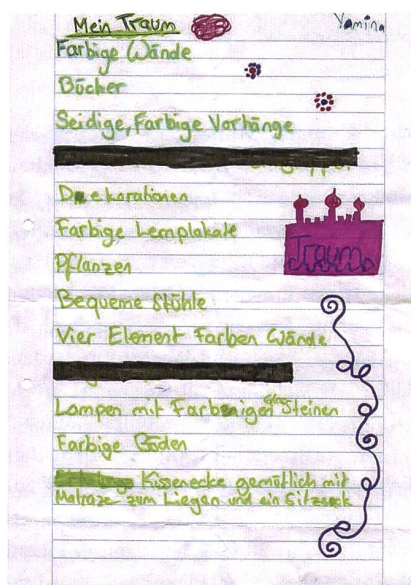 Mein Traum
Yamina
Farbige Wände
Bücher
Seidige, Farbige Vorhänge
Dekorationen
Farbige Lernplakate
Traum
Pflanzen
Bequeme Stühle
Vier Element Farben Wände
Lampen mit Farbenigen Glas Steinen
Farbige Böden
Kissenecke gemütlich mit
Matraze zum Liegen und ein Sitzsack